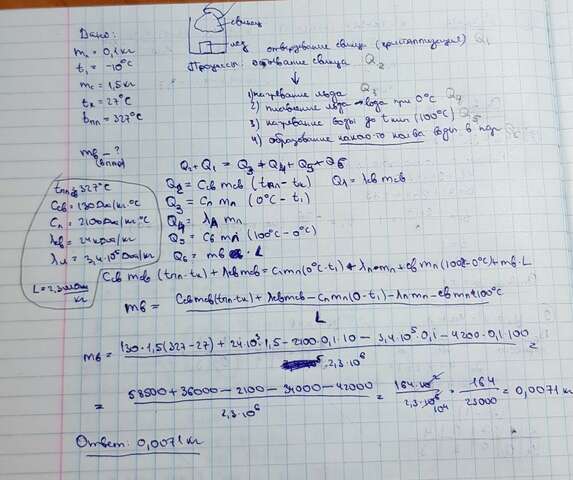 свинец
лёд
Дано:
mл = 0,1 кг
t₁ = -10°C
mс = 1,5 кг
tк = 27°C
tпл = 327°C
mв - ?
(в пар)
отвердевание свинца (кристаллизация) Q₁
Процессы: остывание свинца Q₂
1) нагревание льда Q₃
2) плавление льда → вода при 0°C Q₄
3) нагревание воды до tкип (100°C) Q₅
4) образование какого-то кол-ва воды в пар Q₆
Q₂ + Q₁ = Q₃ + Q₄ + Q₅ + Q₆
tпл = 327°C
Cсв = 130 Дж/кг.°C
Cл = 2100 Дж/кг.°C
λсв = 24 кДж/кг
λл = 3,4·10⁵ Дж/кг
L = 2,3 МДж/кг
Q₂ = Cсв mсв (tпл - tк) Q₁ = λсв mсв
Q₃ = Cл mл (0°C - t₁)
Q₄ = λл mл
Q₅ = Cв mл (100°C - 0°C)
Q₆ = mв · L
Cсв mсв (tпл - tк) + λсв mсв = Cл mл (0°C - t₁) + λл mл + Cв mл (100°C - 0°C) + mв · L
mв = Cсв mсв (tпл - tк) + λсв mсв - Cл mл (0 - t₁) - λл mл - Cв mл 100°C
L
mв = 130 · 1,5 (327 - 27) + 24·10³·1,5 - 2100·0,1·10 - 3,4·10⁵·0,1 - 4200·0,1·100
2,3·10⁶ =
= 58500 + 36000 - 2100 - 34000 - 42000 / 2,3·10⁶ = 164·10² / 2,3·10⁶ 10⁴ = 164 / 23000 = 0,0071 кг
Ответ: 0,0071 кг